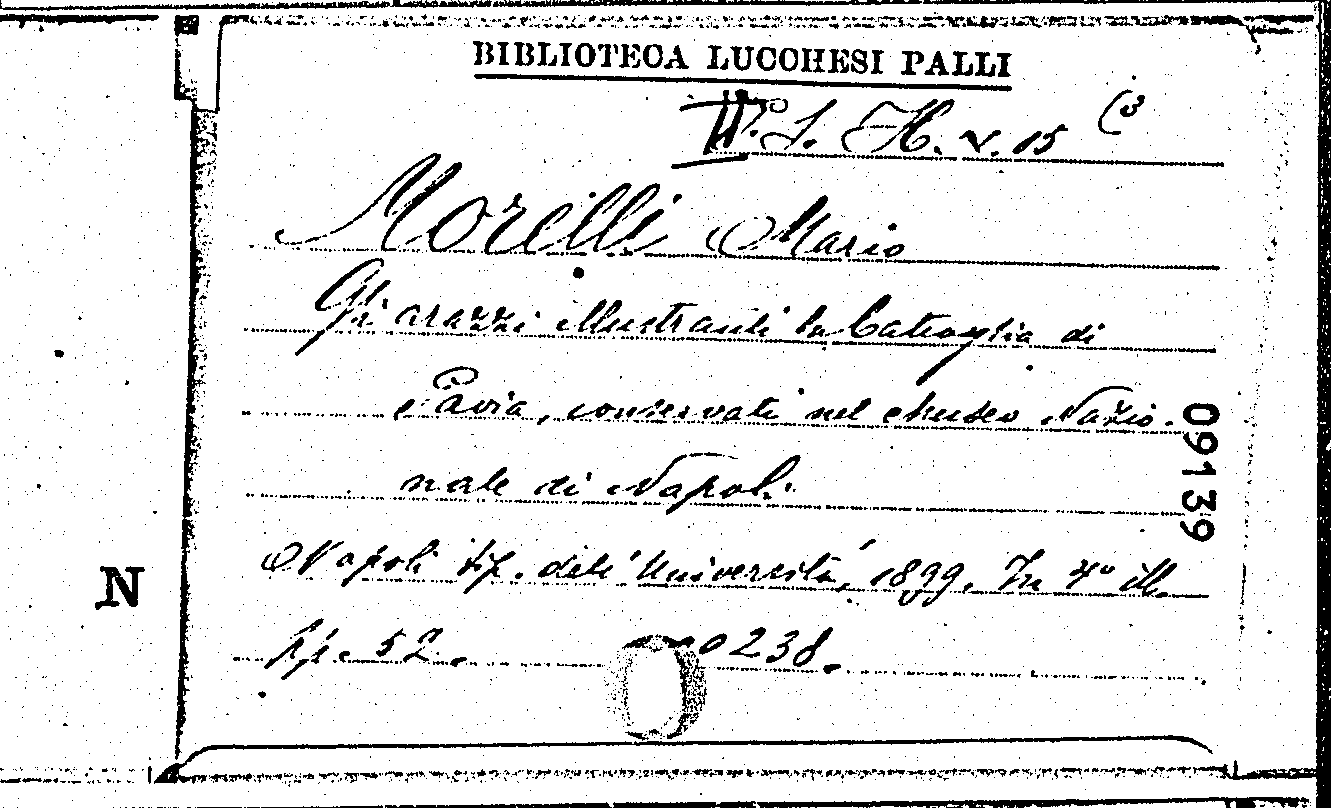 BIBLIOTECA LUCCHESI PALLI
S. H. V. 15 (3
Morelli Mario
Gli arazzi illustranti la battaglia di
Pavia, conservati nel Museo Nazio-
nale di Napoli.
Napoli tip. dell'Università, 1899. In 4° ill.
pp. 52. 0238.
09139
N